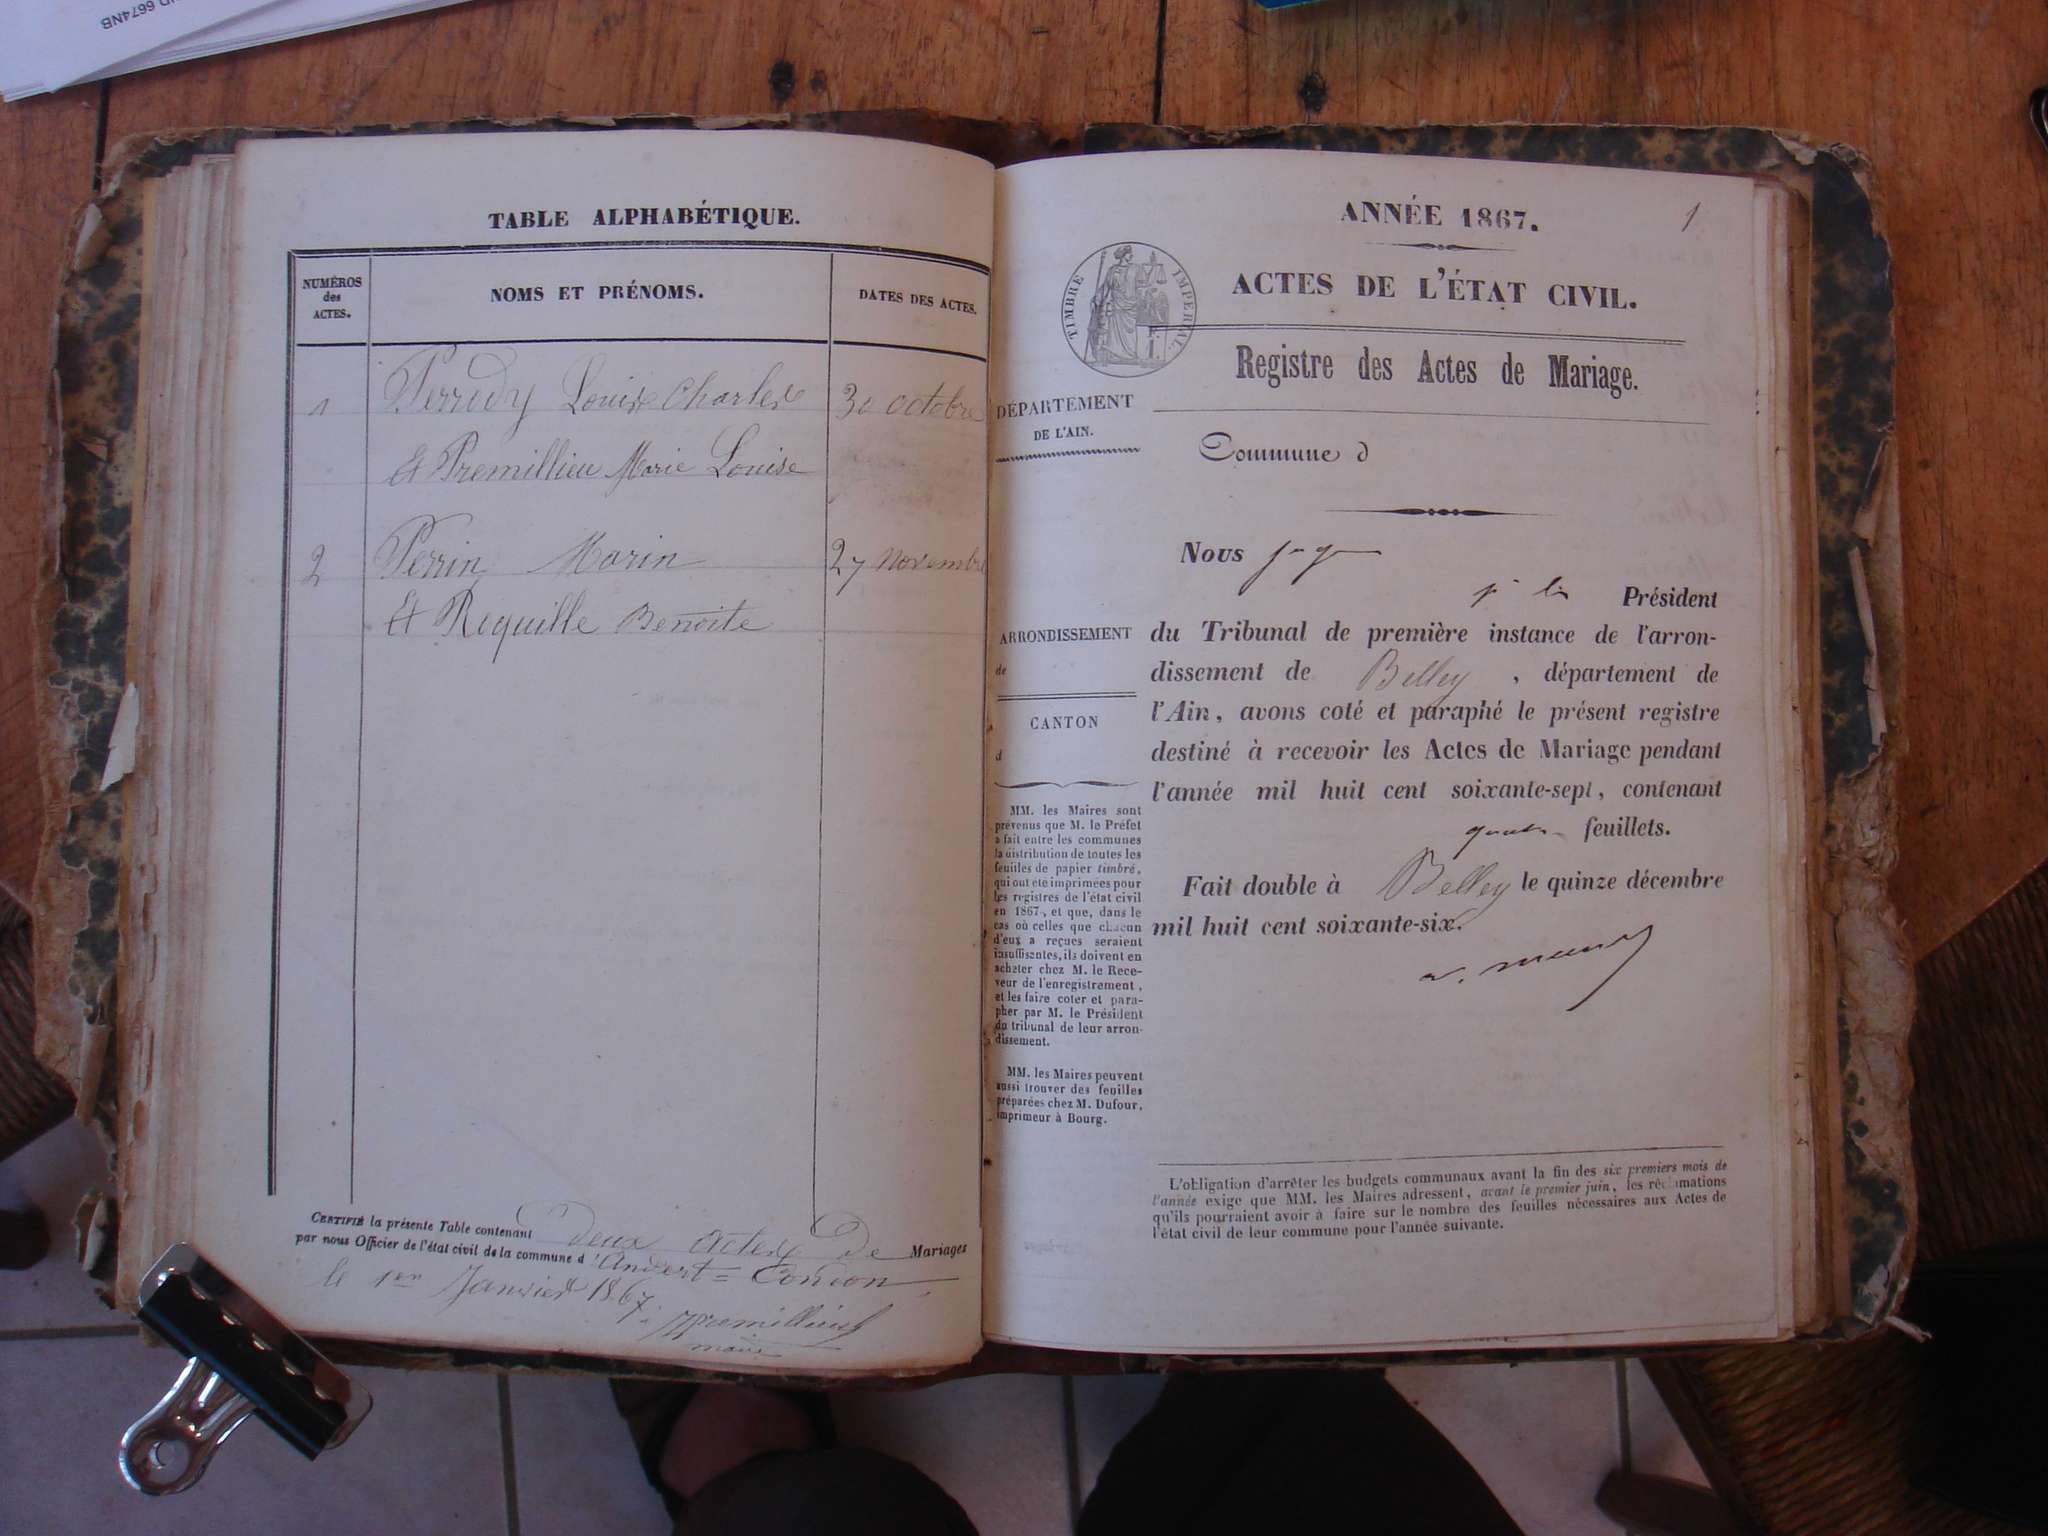 6674NB
TABLE ALPHABÉTIQUE.
NUMÉROS
des
ACTES.
NOMS ET PRÉNOMS.
DATES DES ACTES.
1 Perrody Louis Charles 30 octobre
Et Premillieu Marie Louise
2 Perrin Marin 27 Novembre
Et Riquille Benoite
CERTIFIÉ la présente Table contenant deux actes de Mariages
par nous Officier de l'état civil de la commune d'Andert-Condon
le 1er Janvier 1867.
Premillieu
maire
1
ANNÉE 1867.
TIMBRE IMPÉRIAL
ACTES DE L'ÉTAT CIVIL.
Registre des Actes de Mariage.
DÉPARTEMENT
DE L'AIN.
Commune d
ARRONDISSEMENT
de
CANTON
d
MM. les Maires sont
prévenus que M. le Préfet
a fait entre les communes
la distribution de toutes les
feuilles de papier timbré,
qui ont été imprimées pour
les registres de l'état civil
en 1867, et que, dans le
cas où celles que chacun
d'eux a reçues seraient
insuffisantes, ils doivent en
acheter chez M. le Rece-
veur de l'enregistrement,
et les faire coter et para-
pher par M. le Président
du tribunal de leur arron-
dissement.
MM. les Maires peuvent
aussi trouver des feuilles
préparées chez M. Dufour,
imprimeur à Bourg.
Nous
Président
du Tribunal de première instance de l'arron-
dissement de Belley, département de
l'Ain, avons coté et paraphé le présent registre
destiné à recevoir les Actes de Mariage pendant
l'année mil huit cent soixante-sept, contenant
feuillets.
Fait double à Belley le quinze décembre
mil huit cent soixante-six.
L'obligation d'arrêter les budgets communaux avant la fin des six premiers mois de
l'année exige que MM. les Maires adressent, avant le premier juin, les réclamations
qu'ils pourraient avoir à faire sur le nombre des feuilles nécessaires aux Actes de
l'état civil de leur commune pour l'année suivante.